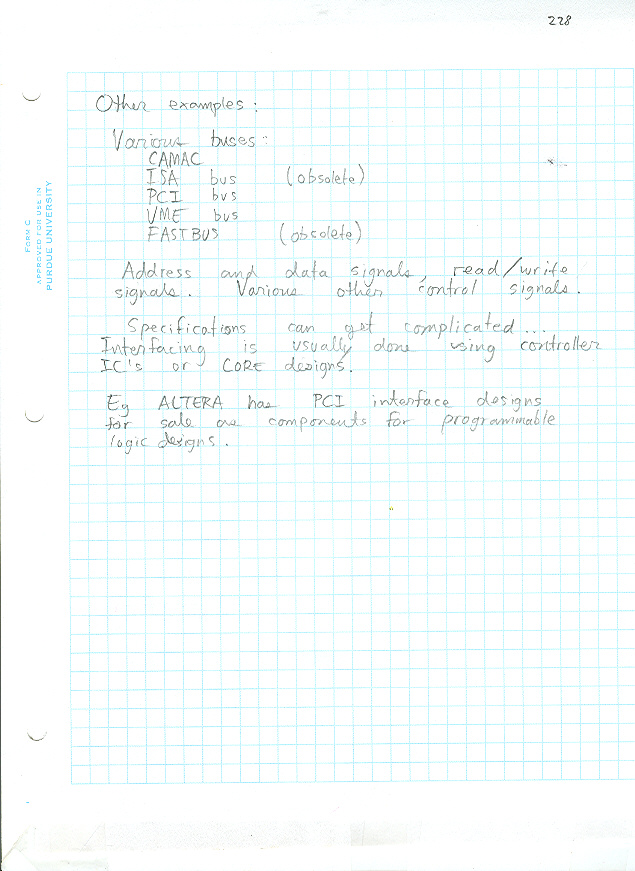 228
Other examples:
Various buses:
CAMAC
ISA bus (obsolete)
PCI bus
VME bus
FASTBUS (obsolete)
Address and data signals, read/write
signals. Various other control signals.
Specifications can get complicated...
Interfacing is usually done using controller
IC's or CORE designs.
Eg ALTERA has PCI interface designs
for sale as components for programmable
logic designs.
FORM C
APPROVED FOR USE IN
PURDUE UNIVERSITY